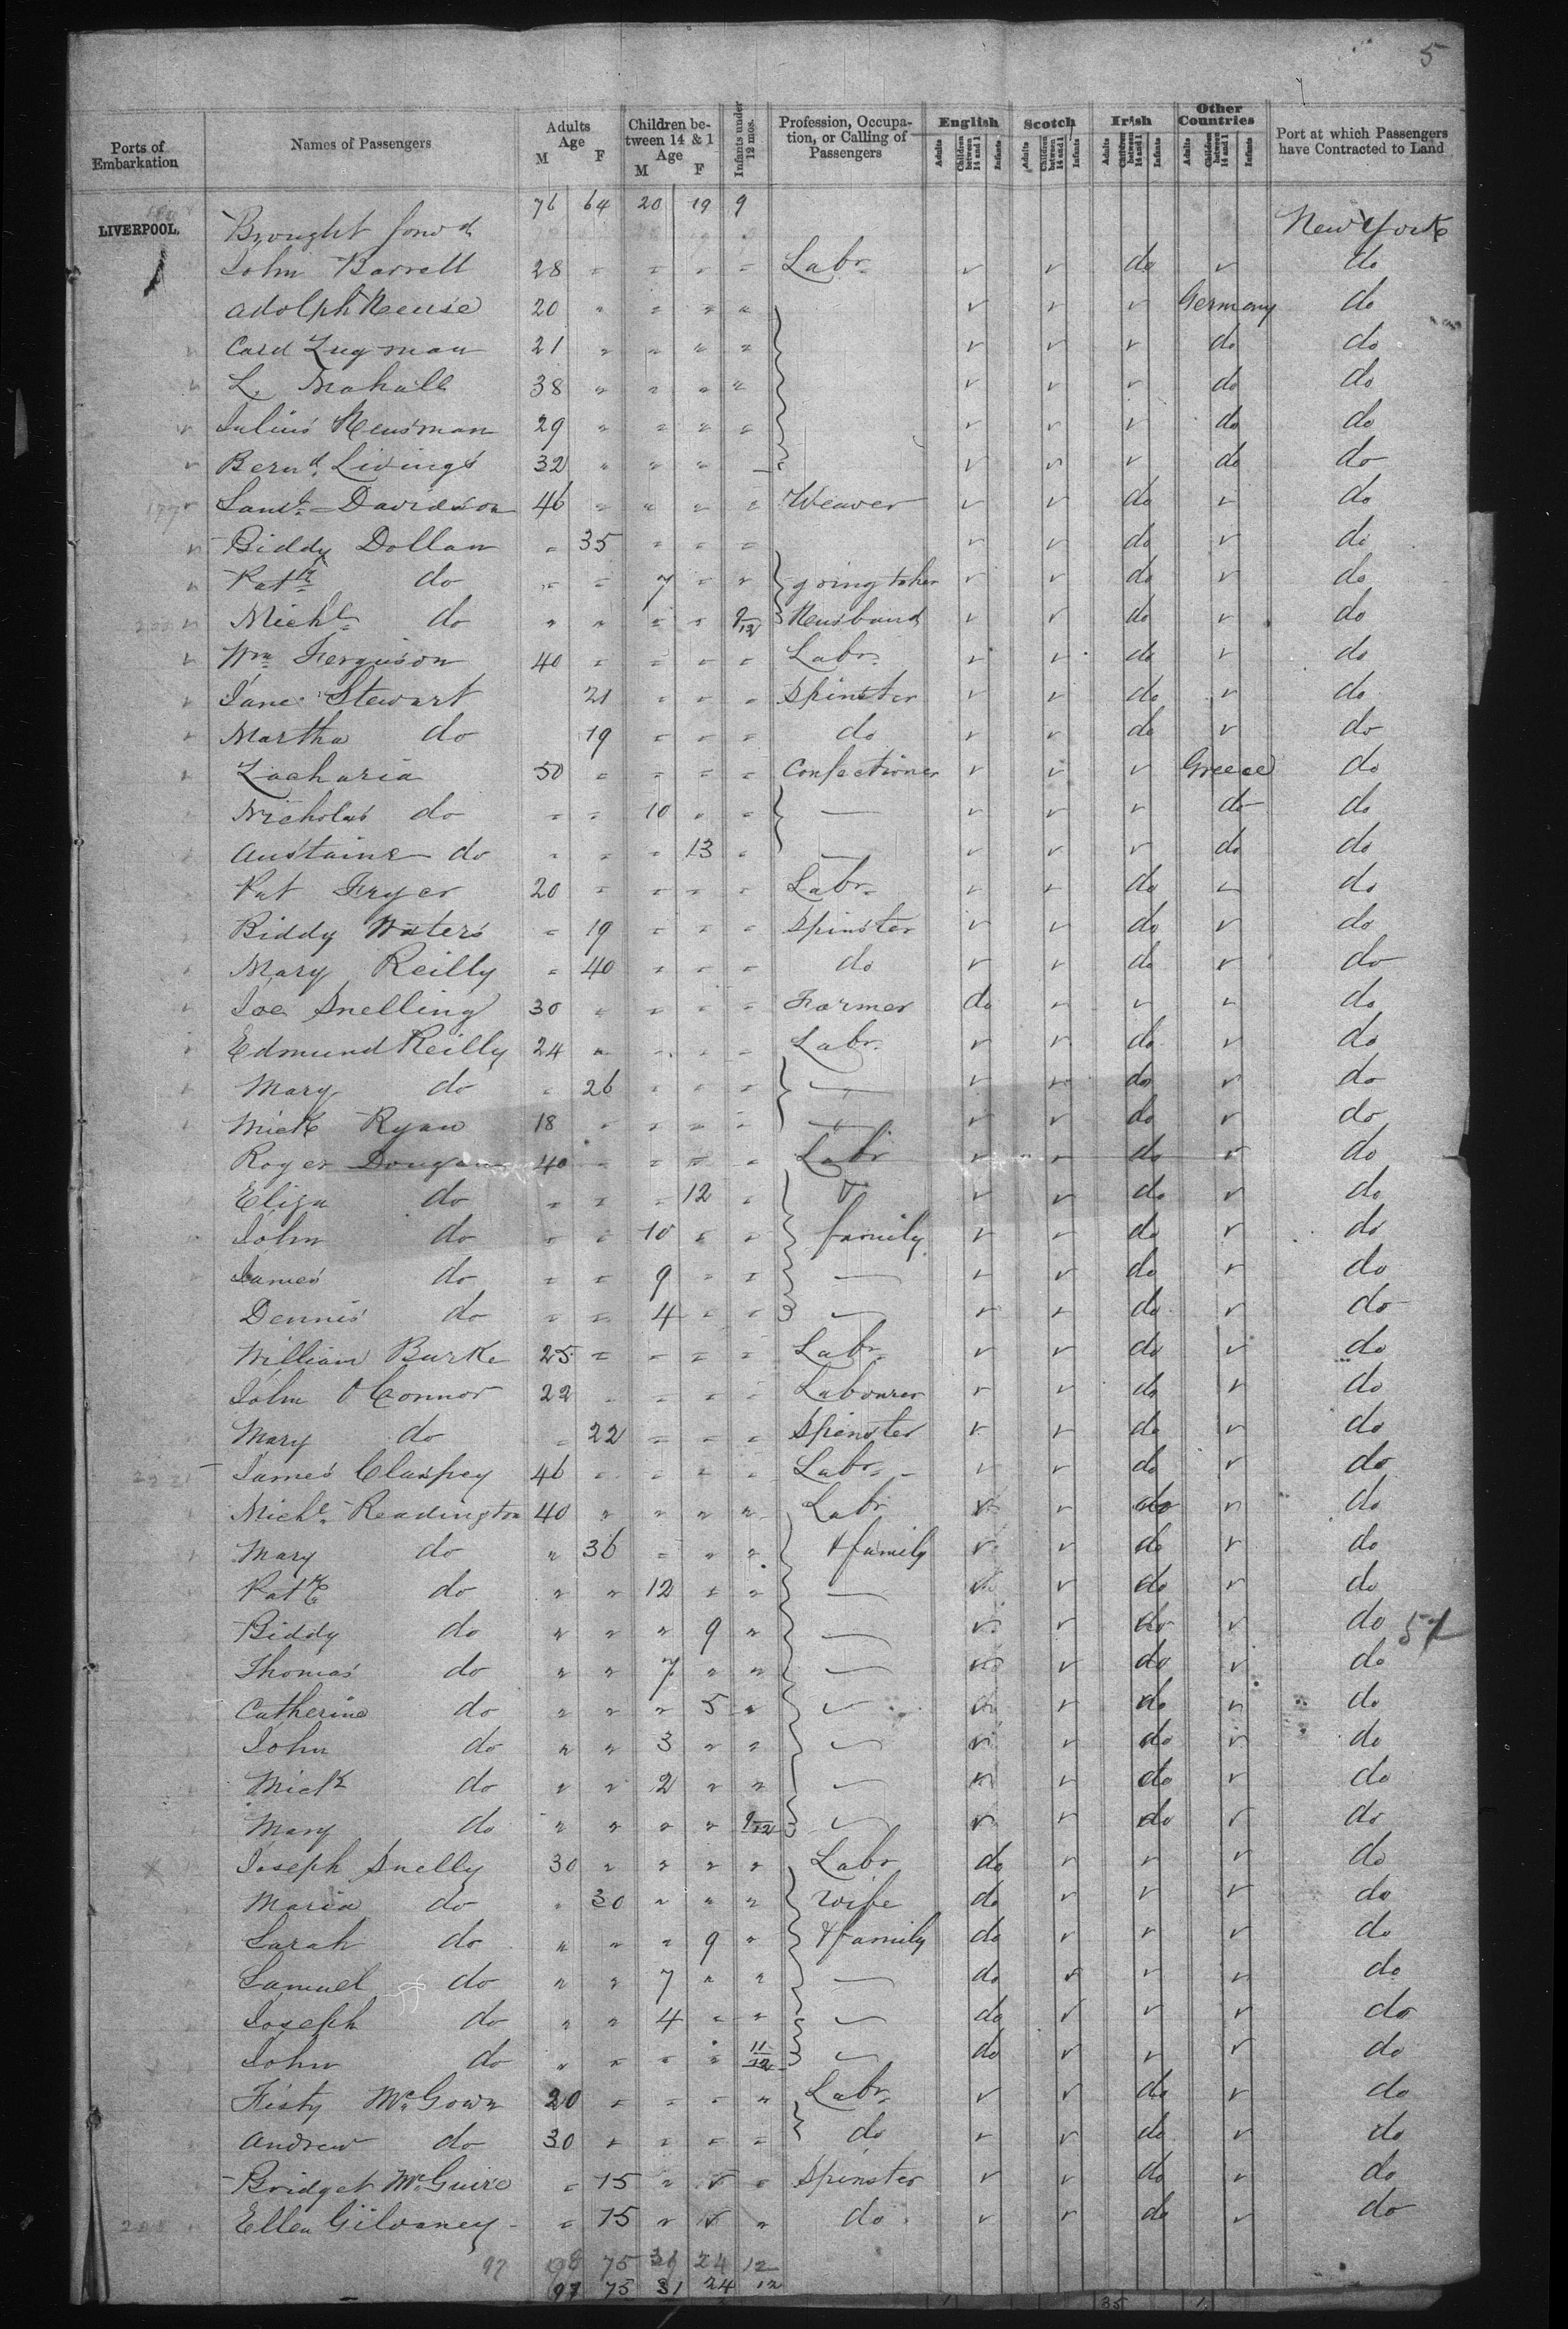 5
Ports of Embarkation | Names of Passengers | Adults Age M F | Children between 14 & 1 Age M F | Infants under 12 mos. | Profession, Occupation, or Calling of Passengers | English Adults Children between 14 and 1 Infants | Scotch Adults Children between 14 and 1 Infants | Irish Adults Children between 14 and 1 Infants | Other Countries Adults Children between 14 and 1 Infants | Port at which Passengers have Contracted to Land
LIVERPOOL. Brought forwd 76 64 20 19 9 New York
John Barrett 28 " " " " Labr. v v do v do
Adolph Neuse 20 " " " " v v v Germany do
Card Zugman 21 " " " " v v v do do
L. Mahall 38 " " " " v v v do do
Julius Neusman 29 " " " " v v v do do
Bernd. Livings 32 " " " v v v do do
Saml. Davidson 46 " " " " Weaver v v do v do
Biddy Dollan " 35 " " " v v do v do
Patk do " " 7 " " going to her v v do v do
Michl. do " " " " 9/12 Husband v v do v do
Wm Ferguson 40 " " " " Labr. v v do v do
Jane Stewart 21 " " " Spinster v v do v do
Martha do 19 " " " do v v do v do
Zacharia 50 " " " " Confectioner v v v Greece do
Nicholas do " " 10 " " — v v v do do
Austaine do " " " 13 " — v v v do do
Pat Fryer 20 " " " " Labr. v v do v do
Biddy Waters " 19 " " " Spinster v v do v do
Mary Reilly " 40 " " " do v v do v do
Joe Snelling 30 " " " " Farmer do v v v do
Edmund Reilly 24 " " " " Labr. v v do v do
Mary do " 26 " " " — v v do v do
Mick Ryan 18 " " " " — v v do v do
Roger Dougan 40 " " " " Labr v v do v do
Eliza do " " " 12 " & v v do v do
John do " " 10 " " family v v do v do
James do " " 9 " " — v v do v do
Dennis do " " 4 " " — v v do v do
William Burke 25 " " " " Labr. v v do v do
John O'Connor 22 " " " " Labourer v v do v do
Mary do " 22 " " " Spinster v v do v do
James Claspey 46 " " " " Labr. v v do v do
Michl. Readington 40 " " " " Labr v v do v do
Mary do " 36 " " " & family v v do v do
Patk do " " 12 " " — v v do v do
Biddy do " " " 9 " — v v do v do 51
Thomas do " " 7 " " — v v do v do
Catherine do " " " 5 " — v v do v do
John do " " 3 " " — v v do v do
Mick do " " 2 " " — v v do v do
Mary do " " " " 9/12 — v v do v do
Joseph Snelly 30 " " " " Labr do v v v do
Maria do " 30 " " " wife do v v v do
Sarah do " " " 9 " & family do v v v do
Samuel do " " 7 " " — do v v v do
Joseph do " " 4 " " — do v v v do
John do " " " " 11/12 — do v v v do
Fisty McGown 20 " " " " Labr. v v do v do
Andrew do 30 " " " " do v v do v do
Bridget McGuire " 15 " v " Spinster v v do v do
Ellen Gilvaney " 15 " v " do v v do v do
97 98 75 31 24 12
97 75 31 24 12
1 35 1